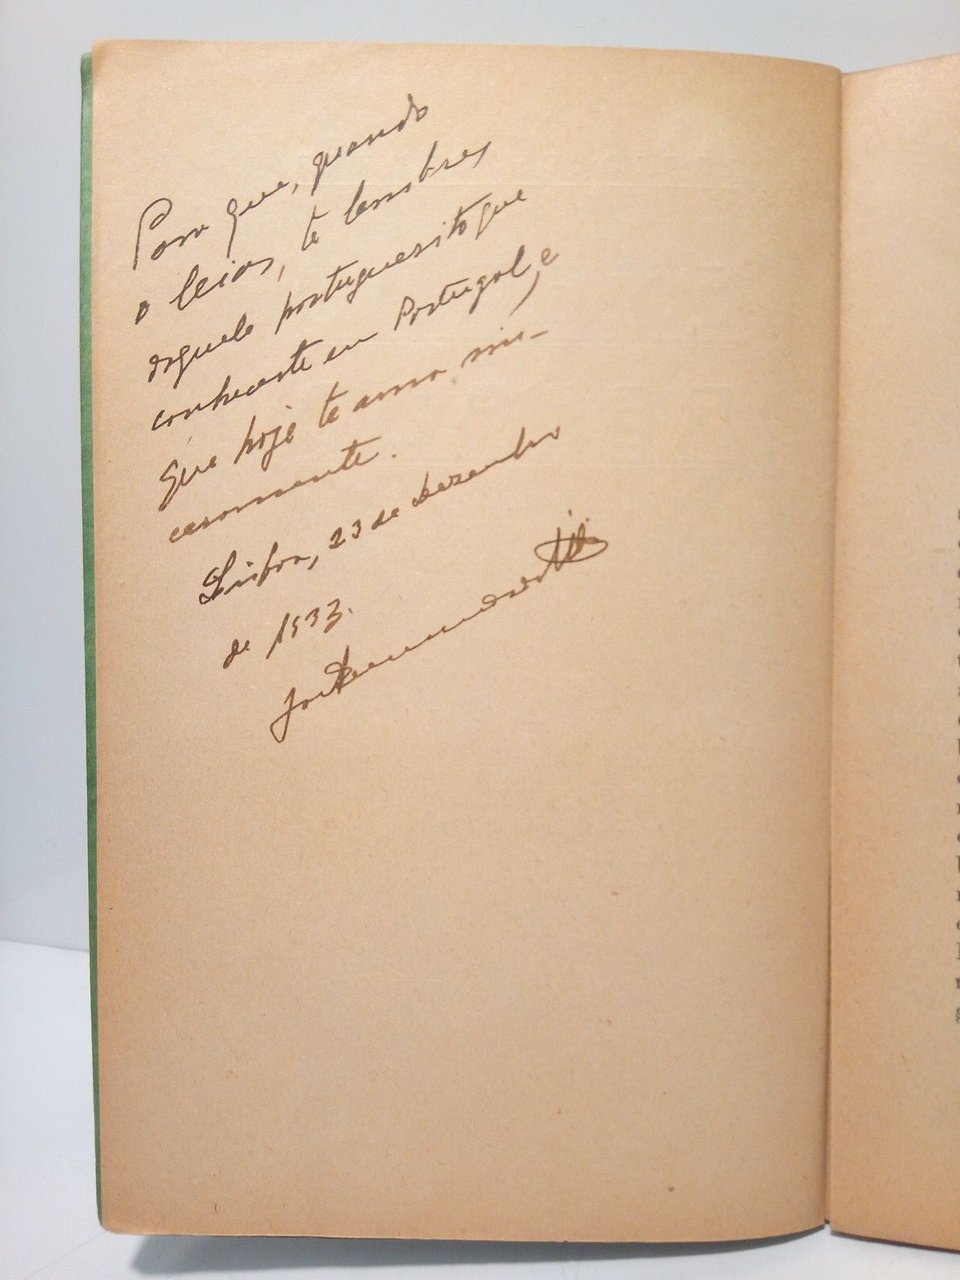 Para que, quando
o leias, te lembres
daquele portuguesito que
conheceste em Portugal, e
que hoje te ama sin-
ceramente.
Lisboa, 23 de Dezembro
de 1933.